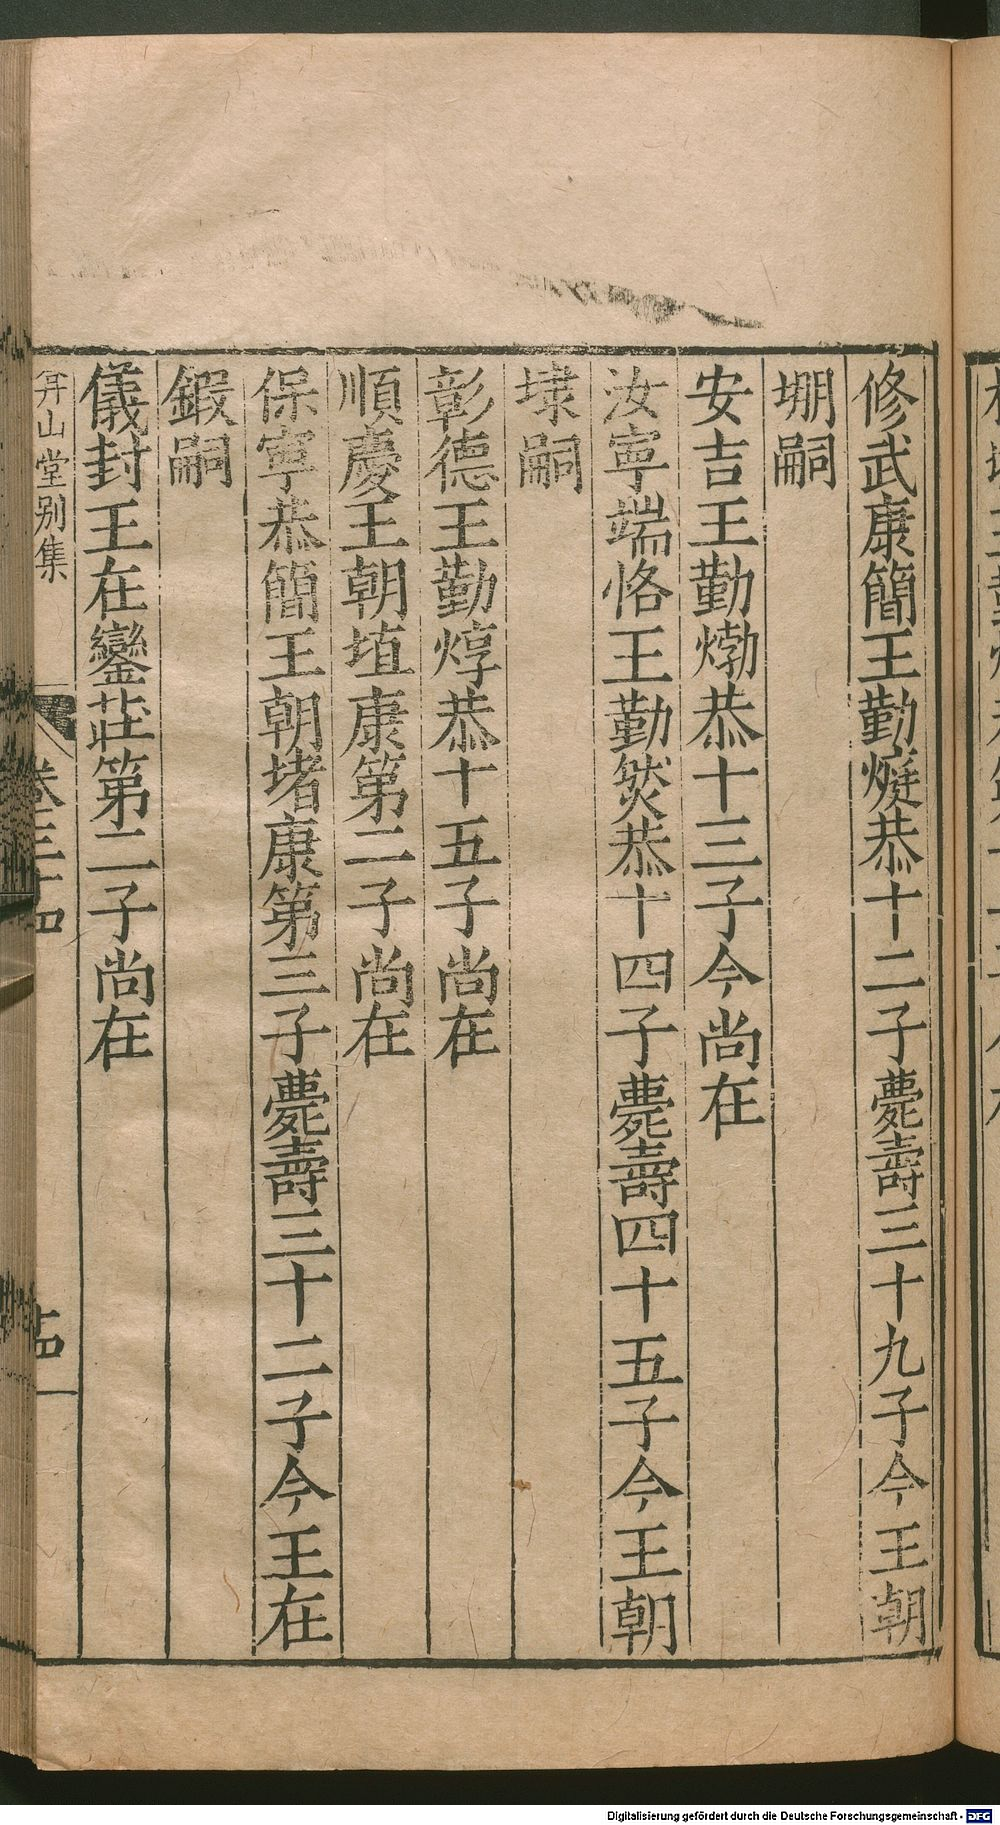 修武康簡王勤㸅恭十二子薨壽三十九子今王朝
堋嗣
安吉王勤㶿恭十三子今尚在
汝寧端恪王勤㷼恭十四子薨壽四十五子今王朝
埭嗣
彰德王勤焞恭十五子尚在
順慶王朝埴康第二子尚在
保寧恭簡王朝堵康第三子薨壽三十二子今王在
鍜嗣
儀封王在鑾莊第二子尚在
弇山堂別集
卷三十四
十四
Digitalisierung gefördert durch die Deutsche Forschungsgemeinschaft - DFG